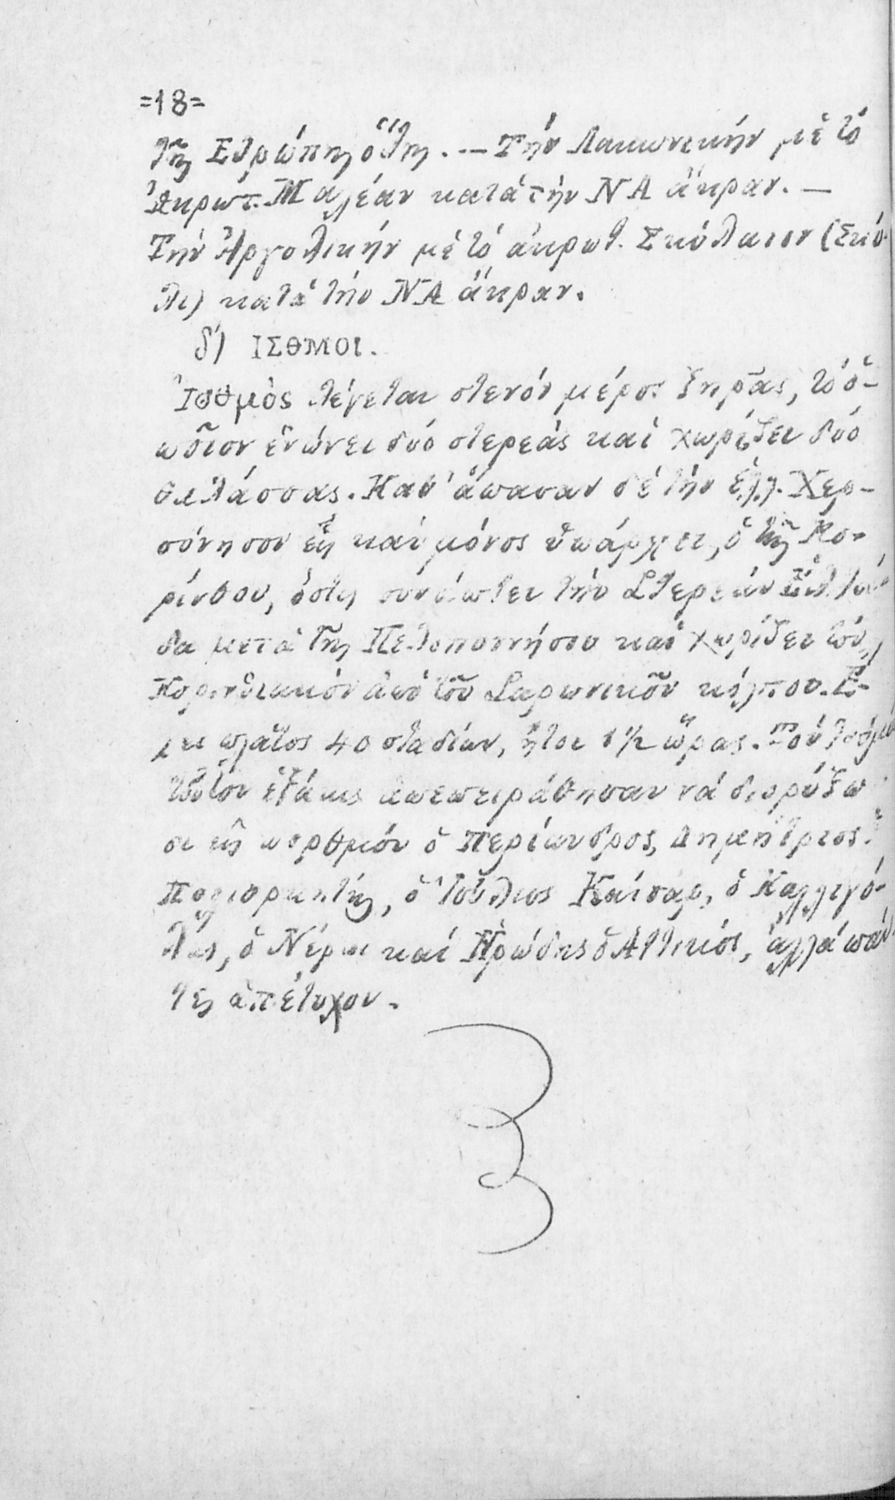 =18=
τῆς Εὐρώπης ὅλης. — Τὴν Λακωνικὴν μὲ τὸ
Ἀκρωτ. Μαλέαν κατὰ τὴν ΝΑ ἄκραν. —
Τὴν Ἀργολικὴν μὲ τὸ ἀκρωτ. Σκύλαιον (Σκύ-
λι) κατὰ τὴν ΝΑ ἄκραν.
δ') ΙΣΘΜΟΙ.
Ἰσθμὸς λέγεται στενὸν μέρος ξηρᾶς, τὸ ὁ-
ποῖον ἑνώνει δύο στερεὰς καὶ χωρίζει δύο
θαλάσσας. Καθ' ἅπασαν δὲ τὴν ἑλλ. Χερ-
σόνησον εἷς καὶ μόνος ὑπάρχει, ὁ τῆς Κο-
ρίνθου, ὅστις συνάπτει τὴν Στερεὰν Ἑλλά-
δα μετὰ τῆς Πελοποννήσου καὶ χωρίζει τὸν
Κορινθιακὸν ἀπὸ τοῦ Σαρωνικοῦ κόλπου. Ἔ-
χει πλάτος 40 σταδίων, ἤτοι 1½ ὥρας. Τὸν Ἰσθμὸν
τοῦτον ἑξάκις ἀπεπειράθησαν νὰ διορύξω
σι εἰς πορθμὸν ὁ Περίανδρος, Δημήτριος ὁ
Πολιορκητής, ὁ Ἰούλιος Καίσαρ, ὁ Καλλιγό-
λας, ὁ Νέρων καὶ Ἡρώδης ὁ Ἀττικός, ἀλλὰ πάν
τες ἀπέτυχον.